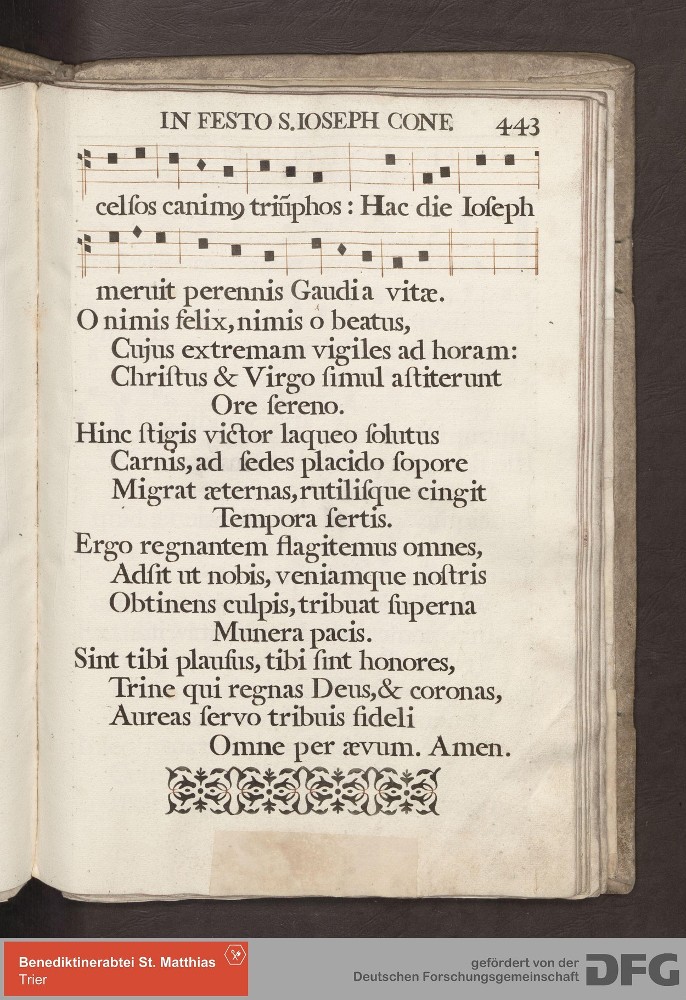 IN FESTO S. IOSEPH CONF. 443
celſos canimꝯ triũphos : Hac die Ioſeph
meruit perennis Gaudia vitæ.
O nimis felix, nimis ò beatus,
Cujus extremam vigiles ad horam:
Chriſtus & Virgo ſimul aſtiterunt
Ore ſereno.
Hinc ſtigis victor laqueo ſolutus
Carnis, ad ſedes placido ſopore
Migrat æternas, rutiliſque cingit
Tempora ſertis.
Ergo regnantem flagitemus omnes,
Adſit ut nobis, veniamque noſtris
Obtinens culpis, tribuat ſuperna
Munera pacis.
Sint tibi plauſus, tibi ſint honores,
Trine qui regnas Deus, & coronas,
Aureas ſervo tribuis fideli
Omne per ævum. Amen.
Benediktinerabtei St. Matthias
Trier
gefördert von der
Deutschen Forschungsgemeinschaft DFG